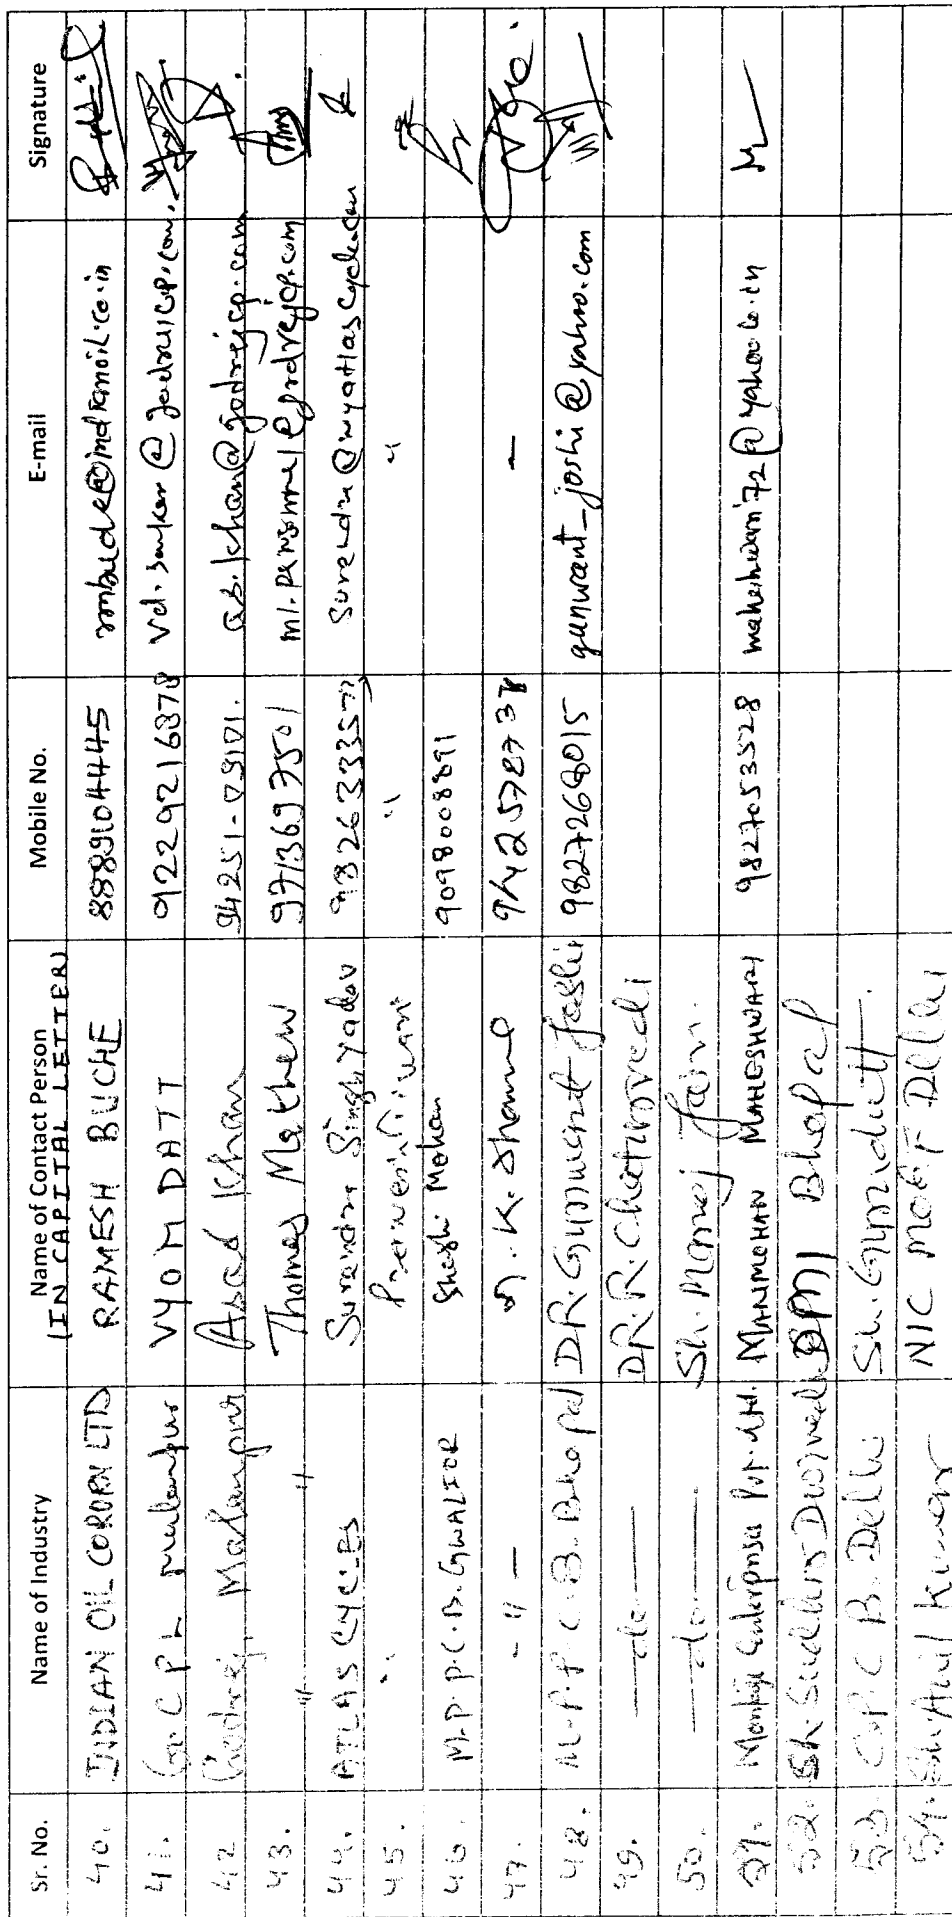 Sr. No. Name of Industry Name of Contact Person (IN CAPITAL LETTER) Mobile No. E-mail Signature
40. INDIAN OIL CORORN LTD RAMESH BUCHE 8889104445
41. G.C.P.L malanpur VYOM DATT 9229216878
42 Godrej, Malanpur Asad Khan 94251-09101. a.s.khan@godrejcp.com
43. -"- " Thomas Mathew 9713697501 ml.personnel@godrejcp.com
44. ATLAS CYCLES Surendra Singh Yadav 9826333577
45. " "
46. M.P.P.C.B. GWALIOR Shashi Mohan 9098008891
47. - " - K. Sharma -
48. M.P.P.C.B. Bhopal DR. Gunwant Joshi 9827268015 gunwant_joshi@yahoo.com
49. —do— DR. R. Chaturvedi
50. —do— Sh. Manoj Jain.
51. Enterprises Pvt. Ltd. MANMOHAN MAHESHWARI 9827053528
52. Sh. Sudhir Dwivedi Bhopal
53. C.P.C.B. Delhi Sh. Gurnam
54. Sh. Anil Kumar NIC MOEF Delhi